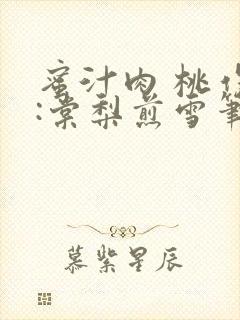 蜜汁肉桃作
:棠梨煎雪笔
慕紫星辰